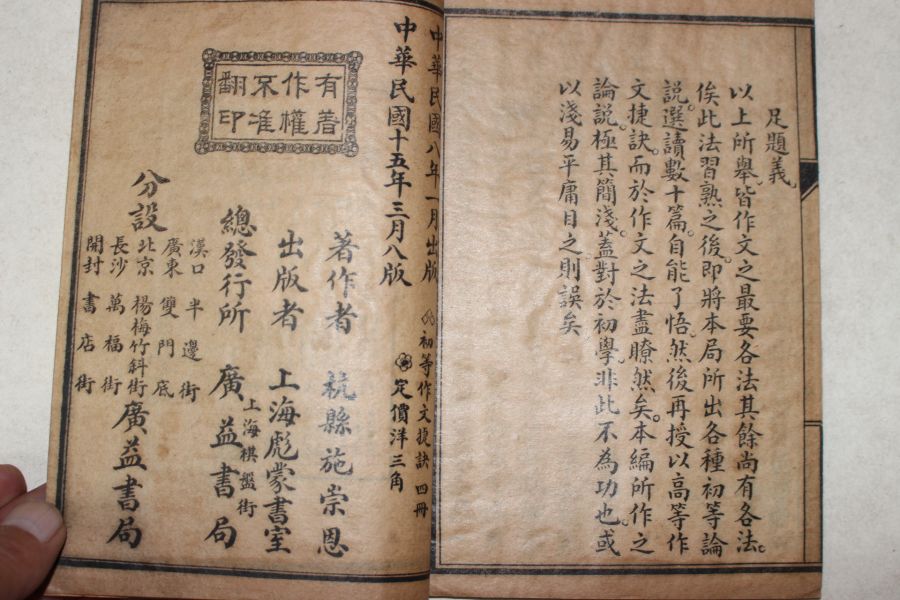 足題義。
以上所舉。皆作文之最要各法其餘尚有各法。
俟此法習熟之後。即將本局所出各種初等論
說。選讀數十篇。自能了悟。然後再授以高等作
文捷訣。而於作文之法盡瞭然矣。本編所作之
論說。極其簡淺。蓋對於初學。非此不為功也。或
以淺易平庸目之則誤矣
中華民國八年一月出版 初等作文捷訣 四冊
中華民國十五年三月八版 定價洋三角
有著
作權
不准
翻印
著作者 杭縣施崇恩
出版者 上海彪蒙書室
總發行所 上海棋盤街 廣益書局
分設
漢口半邊街
廣東雙門底
北京楊梅竹斜街
長沙萬福街
開封書店街
廣益書局